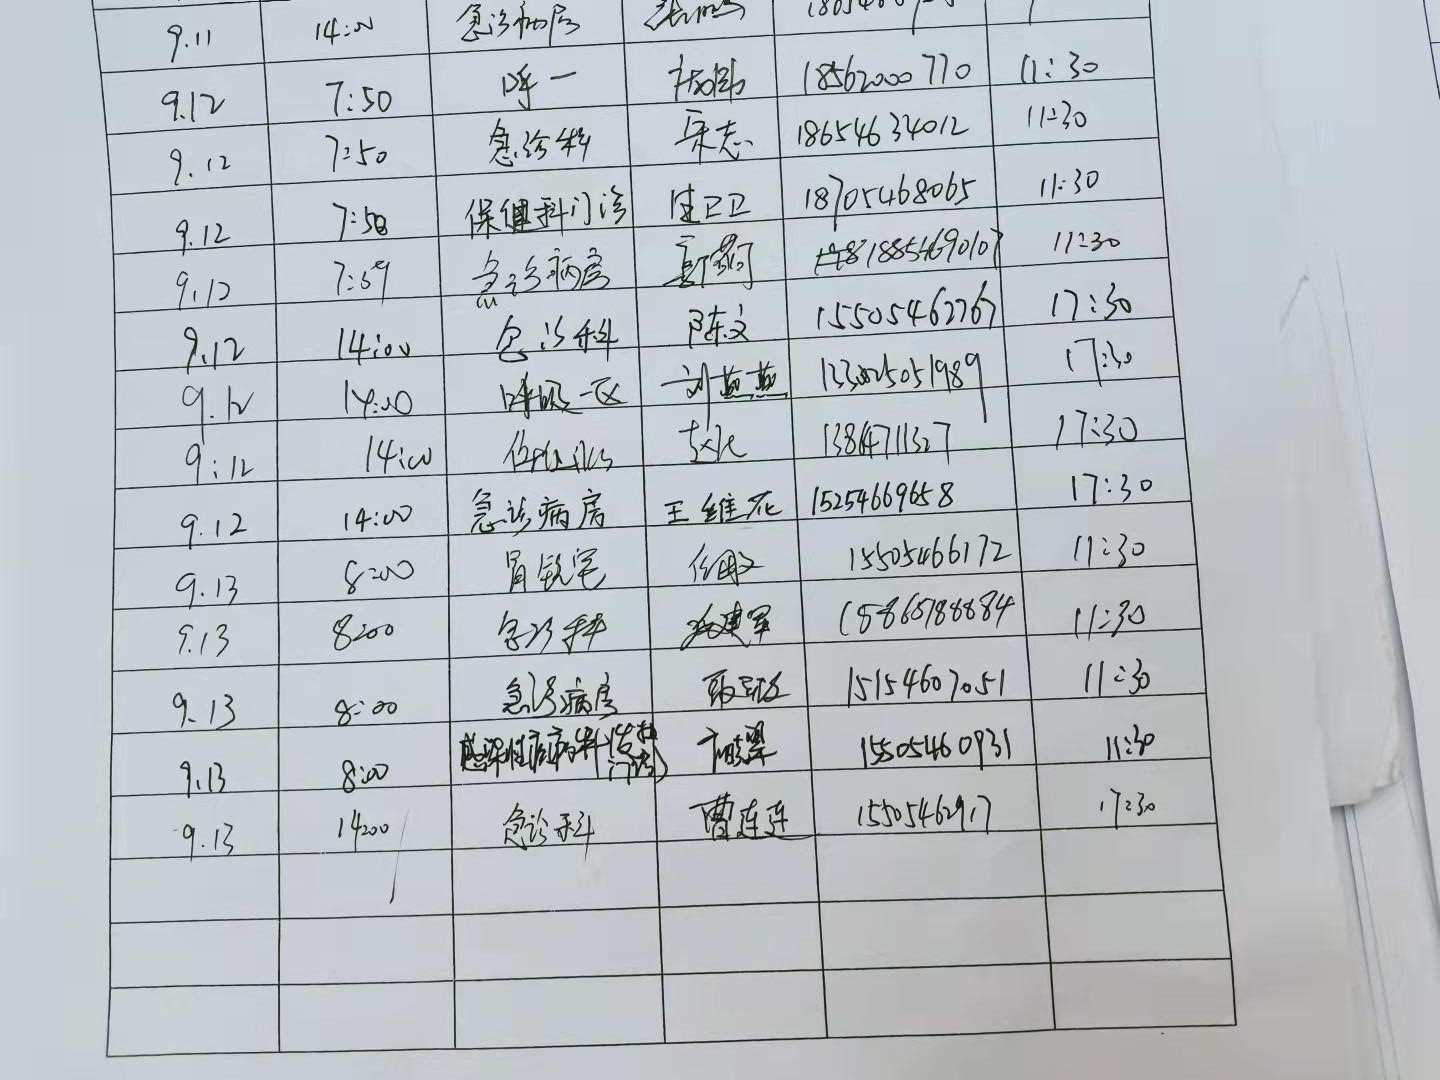 9.11 14:00 急诊病房
9.12 7:50 呼一 18562000770 11:30
9.12 7:50 急诊科 宋志 18654634012 11:30
9.12 7:50 保健科门诊 生卫卫 18705468065 11:30
9.12 7:59 急诊病房 18854690107 11:30
9.12 14:00 急诊科 陈文 15505462767 17:30
9.12 14:00 呼吸一区 刘燕燕 17:30
9:12 14:00 13864711327 17:30
9.12 14:00 急诊病房 王维花 15254669658 17:30
9.13 8:00 胃镜室 15505466172 11:30
9.13 8:00 急诊科 15865788884 11:30
9.13 8:00 急诊病房 15154607051 11:30
9.13 8:00 感染性疾病科(发热门诊) 15505460931 11:30
9.13 14:00 急诊科 曹连连 15505462917 17:30